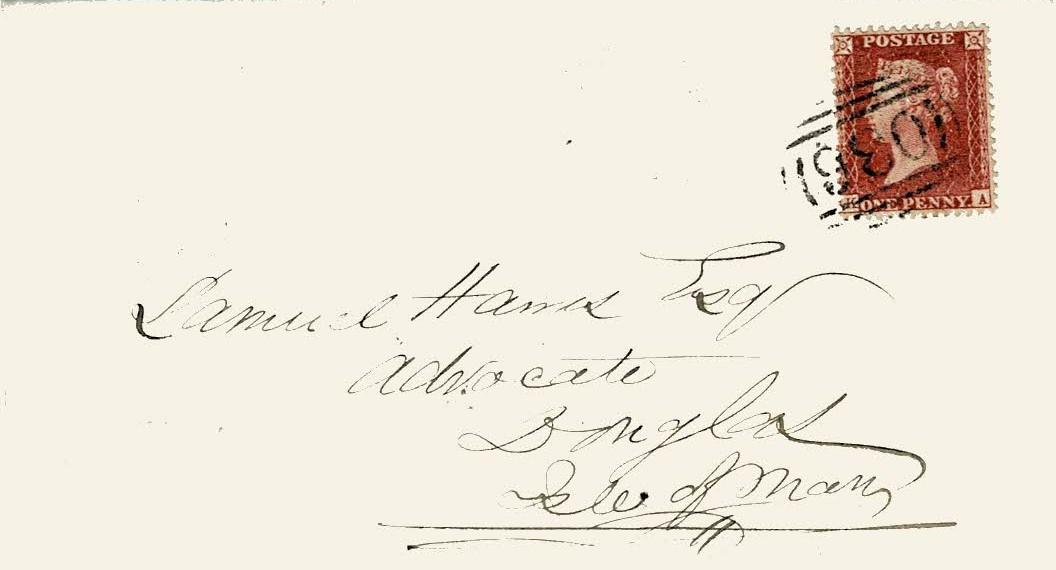 POSTAGE
ONE PENNY A
Samuel Harris Esq
Advocate
Douglas
Isle of Man